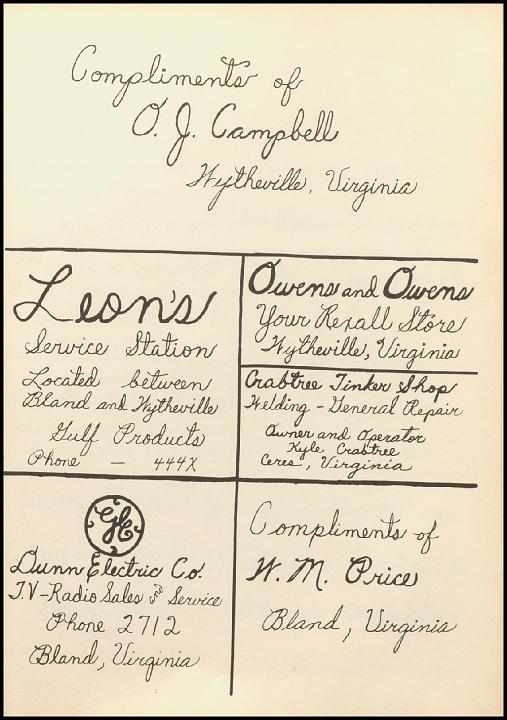 Compliments of
O. J. Campbell
Wytheville, Virginia
Leon's
Service Station
Located between
Bland and Wytheville
Gulf Products
Phone — 444X
Owens and Owens
Your Rexall Store
Wytheville, Virginia
Crabtree Tinker Shop
Welding - General Repair
Owner and Operator
Kyle Crabtree
Ceres, Virginia
GE
Dunn Electric Co.
T.V-Radio Sales and Service
Phone 2712
Bland, Virginia
Compliments of
W. M. Price
Bland, Virginia